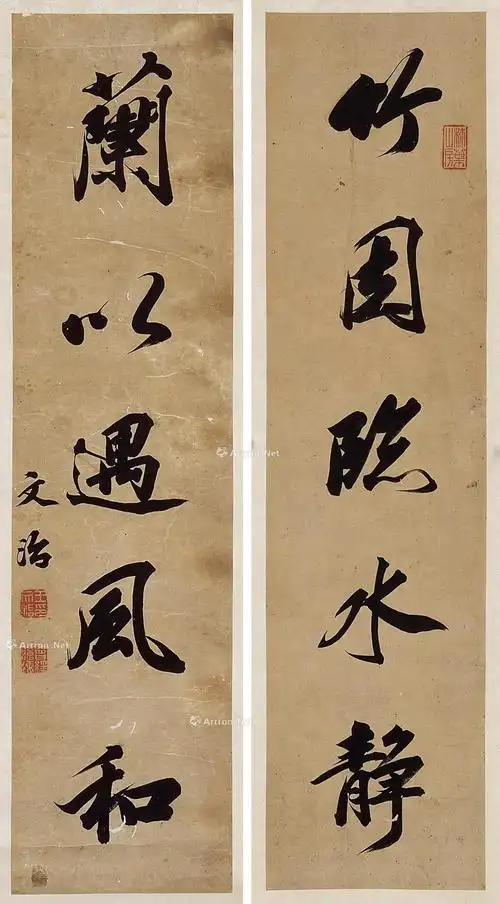 竹因臨水靜
蘭以遇風和
文治
Artron.Net
Artron.Net
Artron.Net